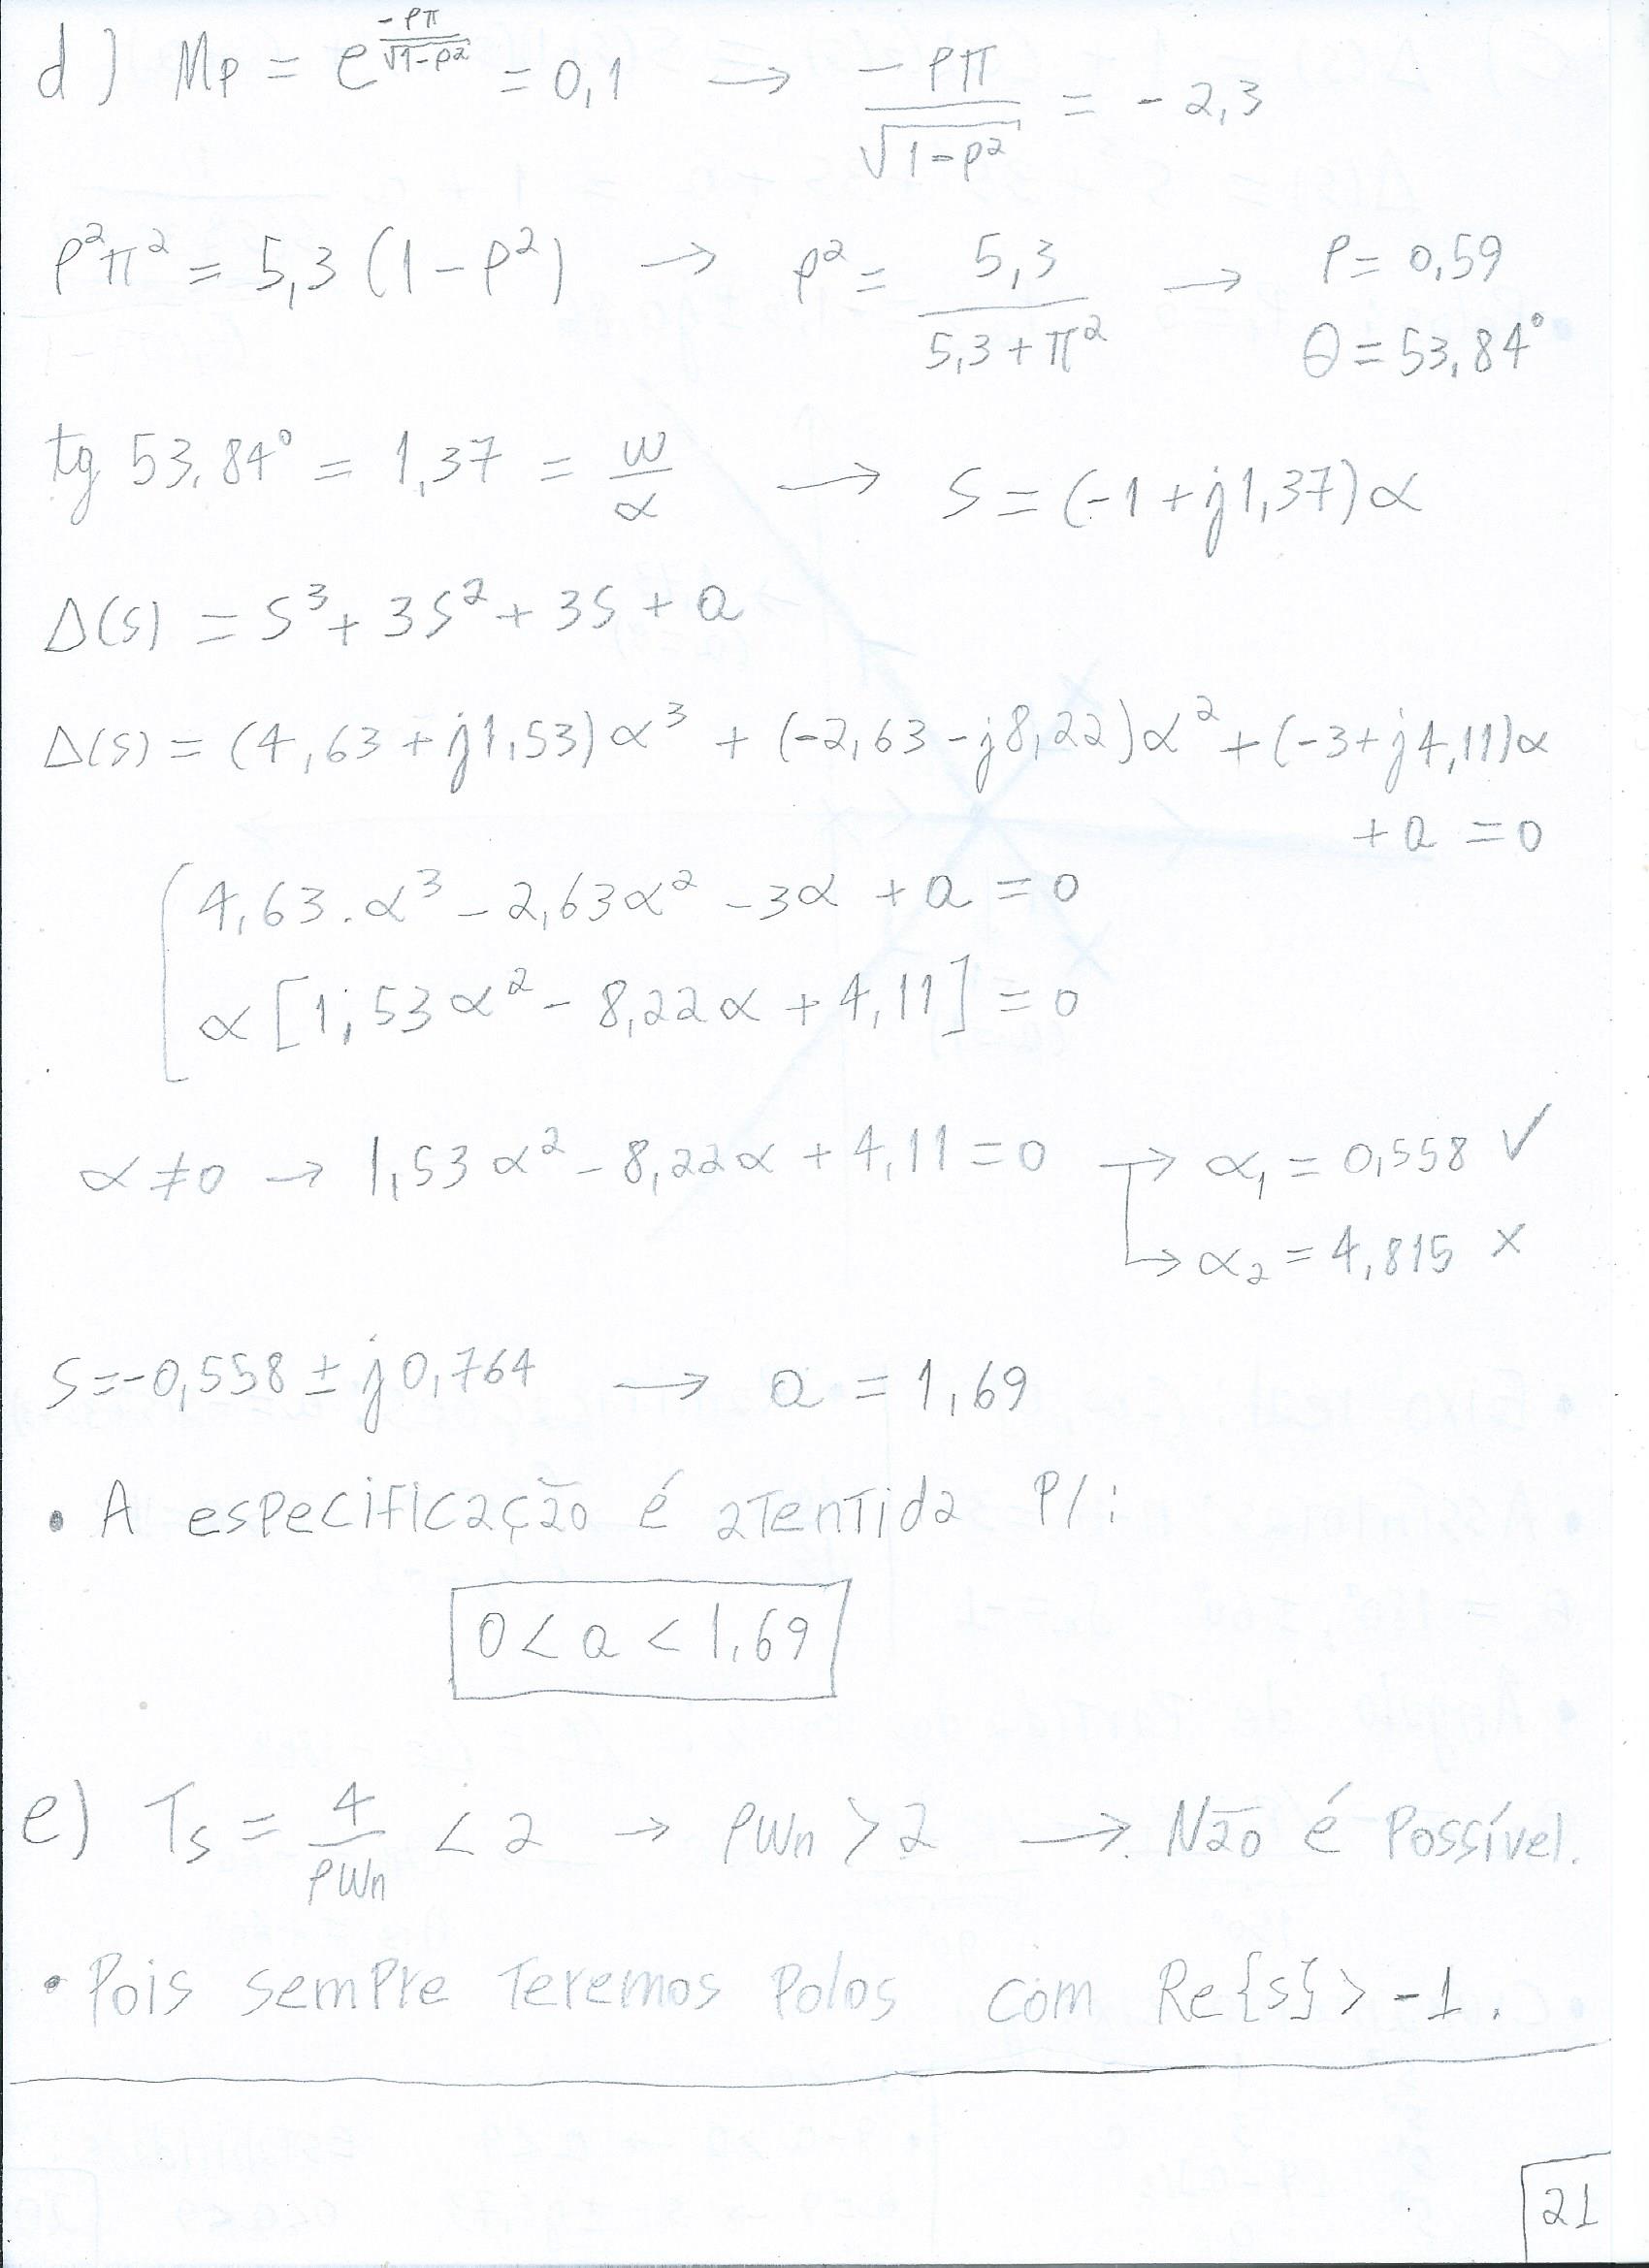 d) Mp = e^(-ρπ/√(1-ρ²)) = 0,1 → -ρπ/√(1-ρ²) = -2,3
ρ²π² = 5,3 (1-ρ²) → ρ² = 5,3/(5,3+π²) → ρ = 0,59
θ = 53,84°
tg 53,84° = 1,37 = w/α → S = (-1+j1,37)α
Δ(s) = S³ + 3S² + 3S + a
Δ(s) = (4,63+j1,53)α³ + (-2,63-j8,22)α² + (-3+j4,11)α
+ a = 0
4,63.α³ - 2,63α² - 3α + a = 0
α [1,53α² - 8,22α + 4,11] = 0
α ≠ 0 → 1,53α² - 8,22α + 4,11 = 0 → α₁ = 0,558 ✓
↳ α₂ = 4,815 ×
S = -0,558 ± j0,764 → a = 1,69
• A especificação é atentida p/:
0 < a < 1,69
e) Ts = 4/ρWn < 2 → ρWn > 2 → Não é possível.
• Pois sempre teremos polos com Re{s} > -1.
21